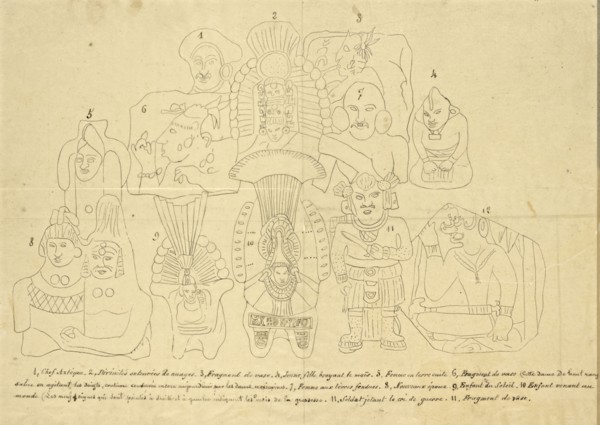 1
2
3
4
5
6
7
8
9
10
11
12
1, Chef Aztèque. 2, Divinité entourée de nuages. 3, Fragment de vase. 4, Jeune fille broyant le maïs. 5. Femme en terre cuite 6, Fragment de vase (Cette dame De haut rang
salue en agitant les doigts, comme encore par les dames mexicaines. 7, Femme aux lèvres fendues. 8, Nouveaux époux. 9, Enfant du Soleil. 10 Enfant venant au
monde (Les neuf signes que sont gravés à droite et à gauche indiquent les mois de la grossesse. 11, Soldat jetant le cri de guerre. 11. Fragment de vase.